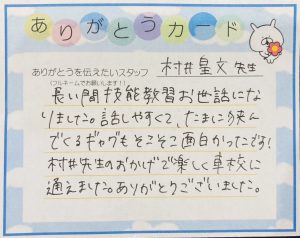 ありがとうカード
ありがとうを伝えたいスタッフ
(フルネームでお願いします!!)
村井皇文先生
長い間技能教習お世話にな
りました。話しやすくて、たまに挟ん
でくるギャグもそこそこ面白かったです!
村井先生のおかげで楽しく車校に
通えました。ありがとうございました。